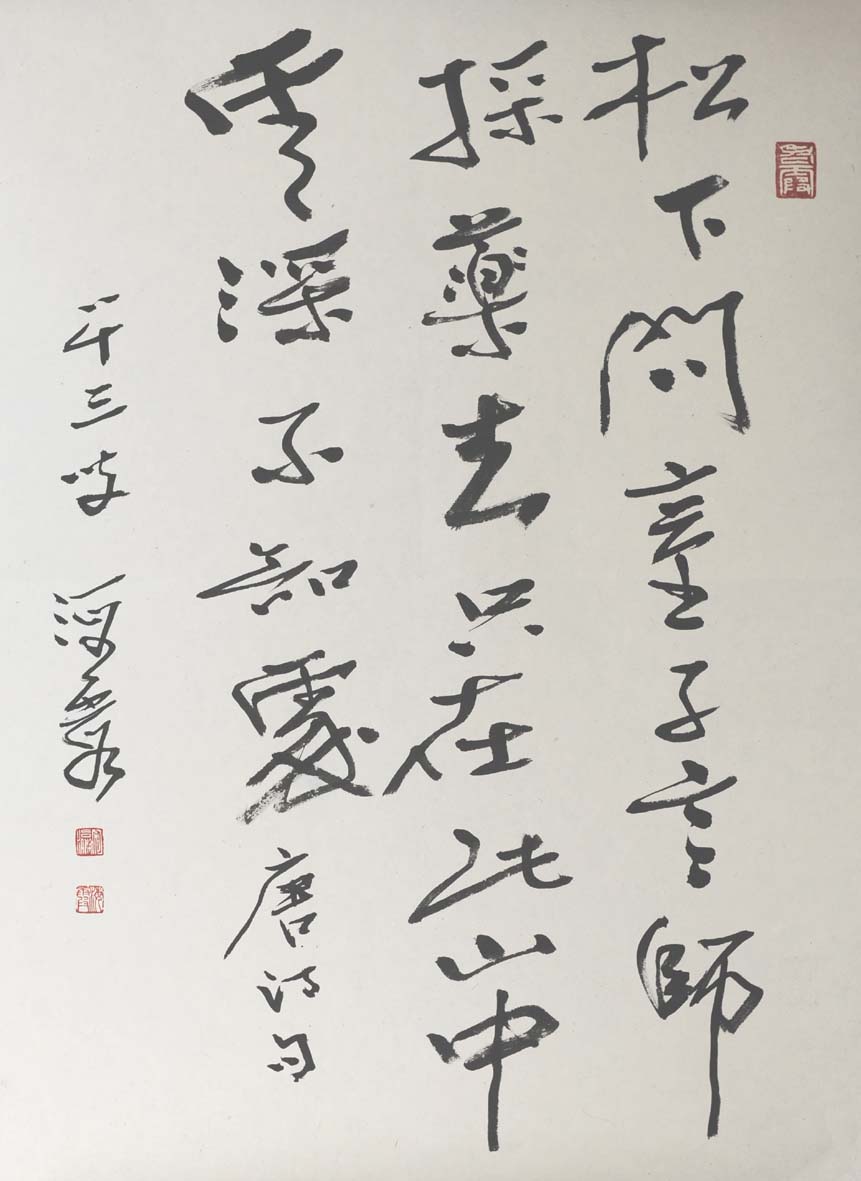 松下問童子言師
採藥去只在此山中
雲深不知處唐诗句
廿三叟海霞